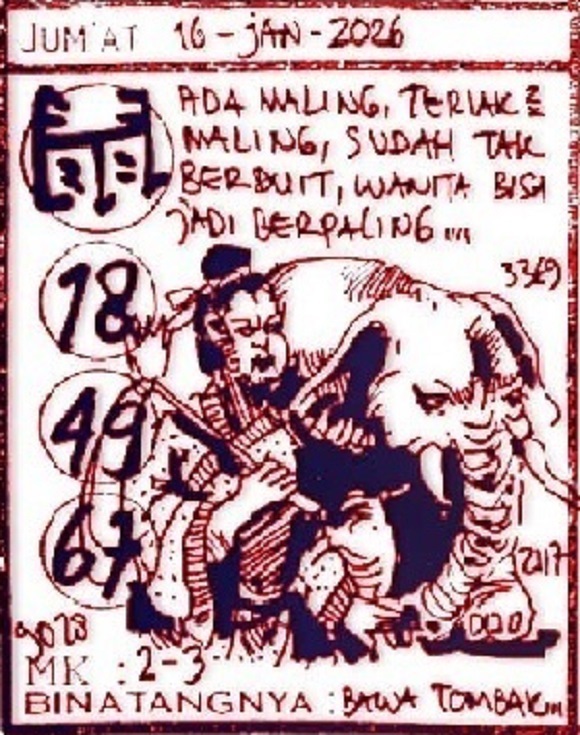 JUM'AT 16-JAN-2026
ADA MALING, TERIAK²
MALING, SUDAH TAK
BERDUIT, WANITA BISA
JADI BERPALING...
18
3369
49
67
2017
9078
MK : 2-3
BINATANGNYA : BAWA TOMBAK...